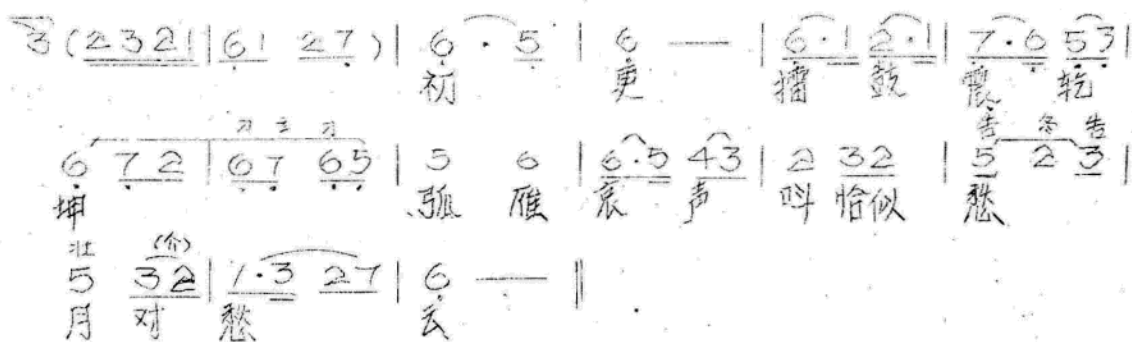 3 (2321 | 61 27) | 6 · 5 | 6 — | 6·1 2·1 | 7·6 53 |
初 更 擂 鼓 震 乾
6 72 | 67 65 | 5 6 | 6·5 43 | 2 32 | 5 2 3 |
坤 孤 雁 哀 声 叫 恰似 愁
(介)
5 32 | 1·3 27 | 6 — ‖
月 对 愁 云